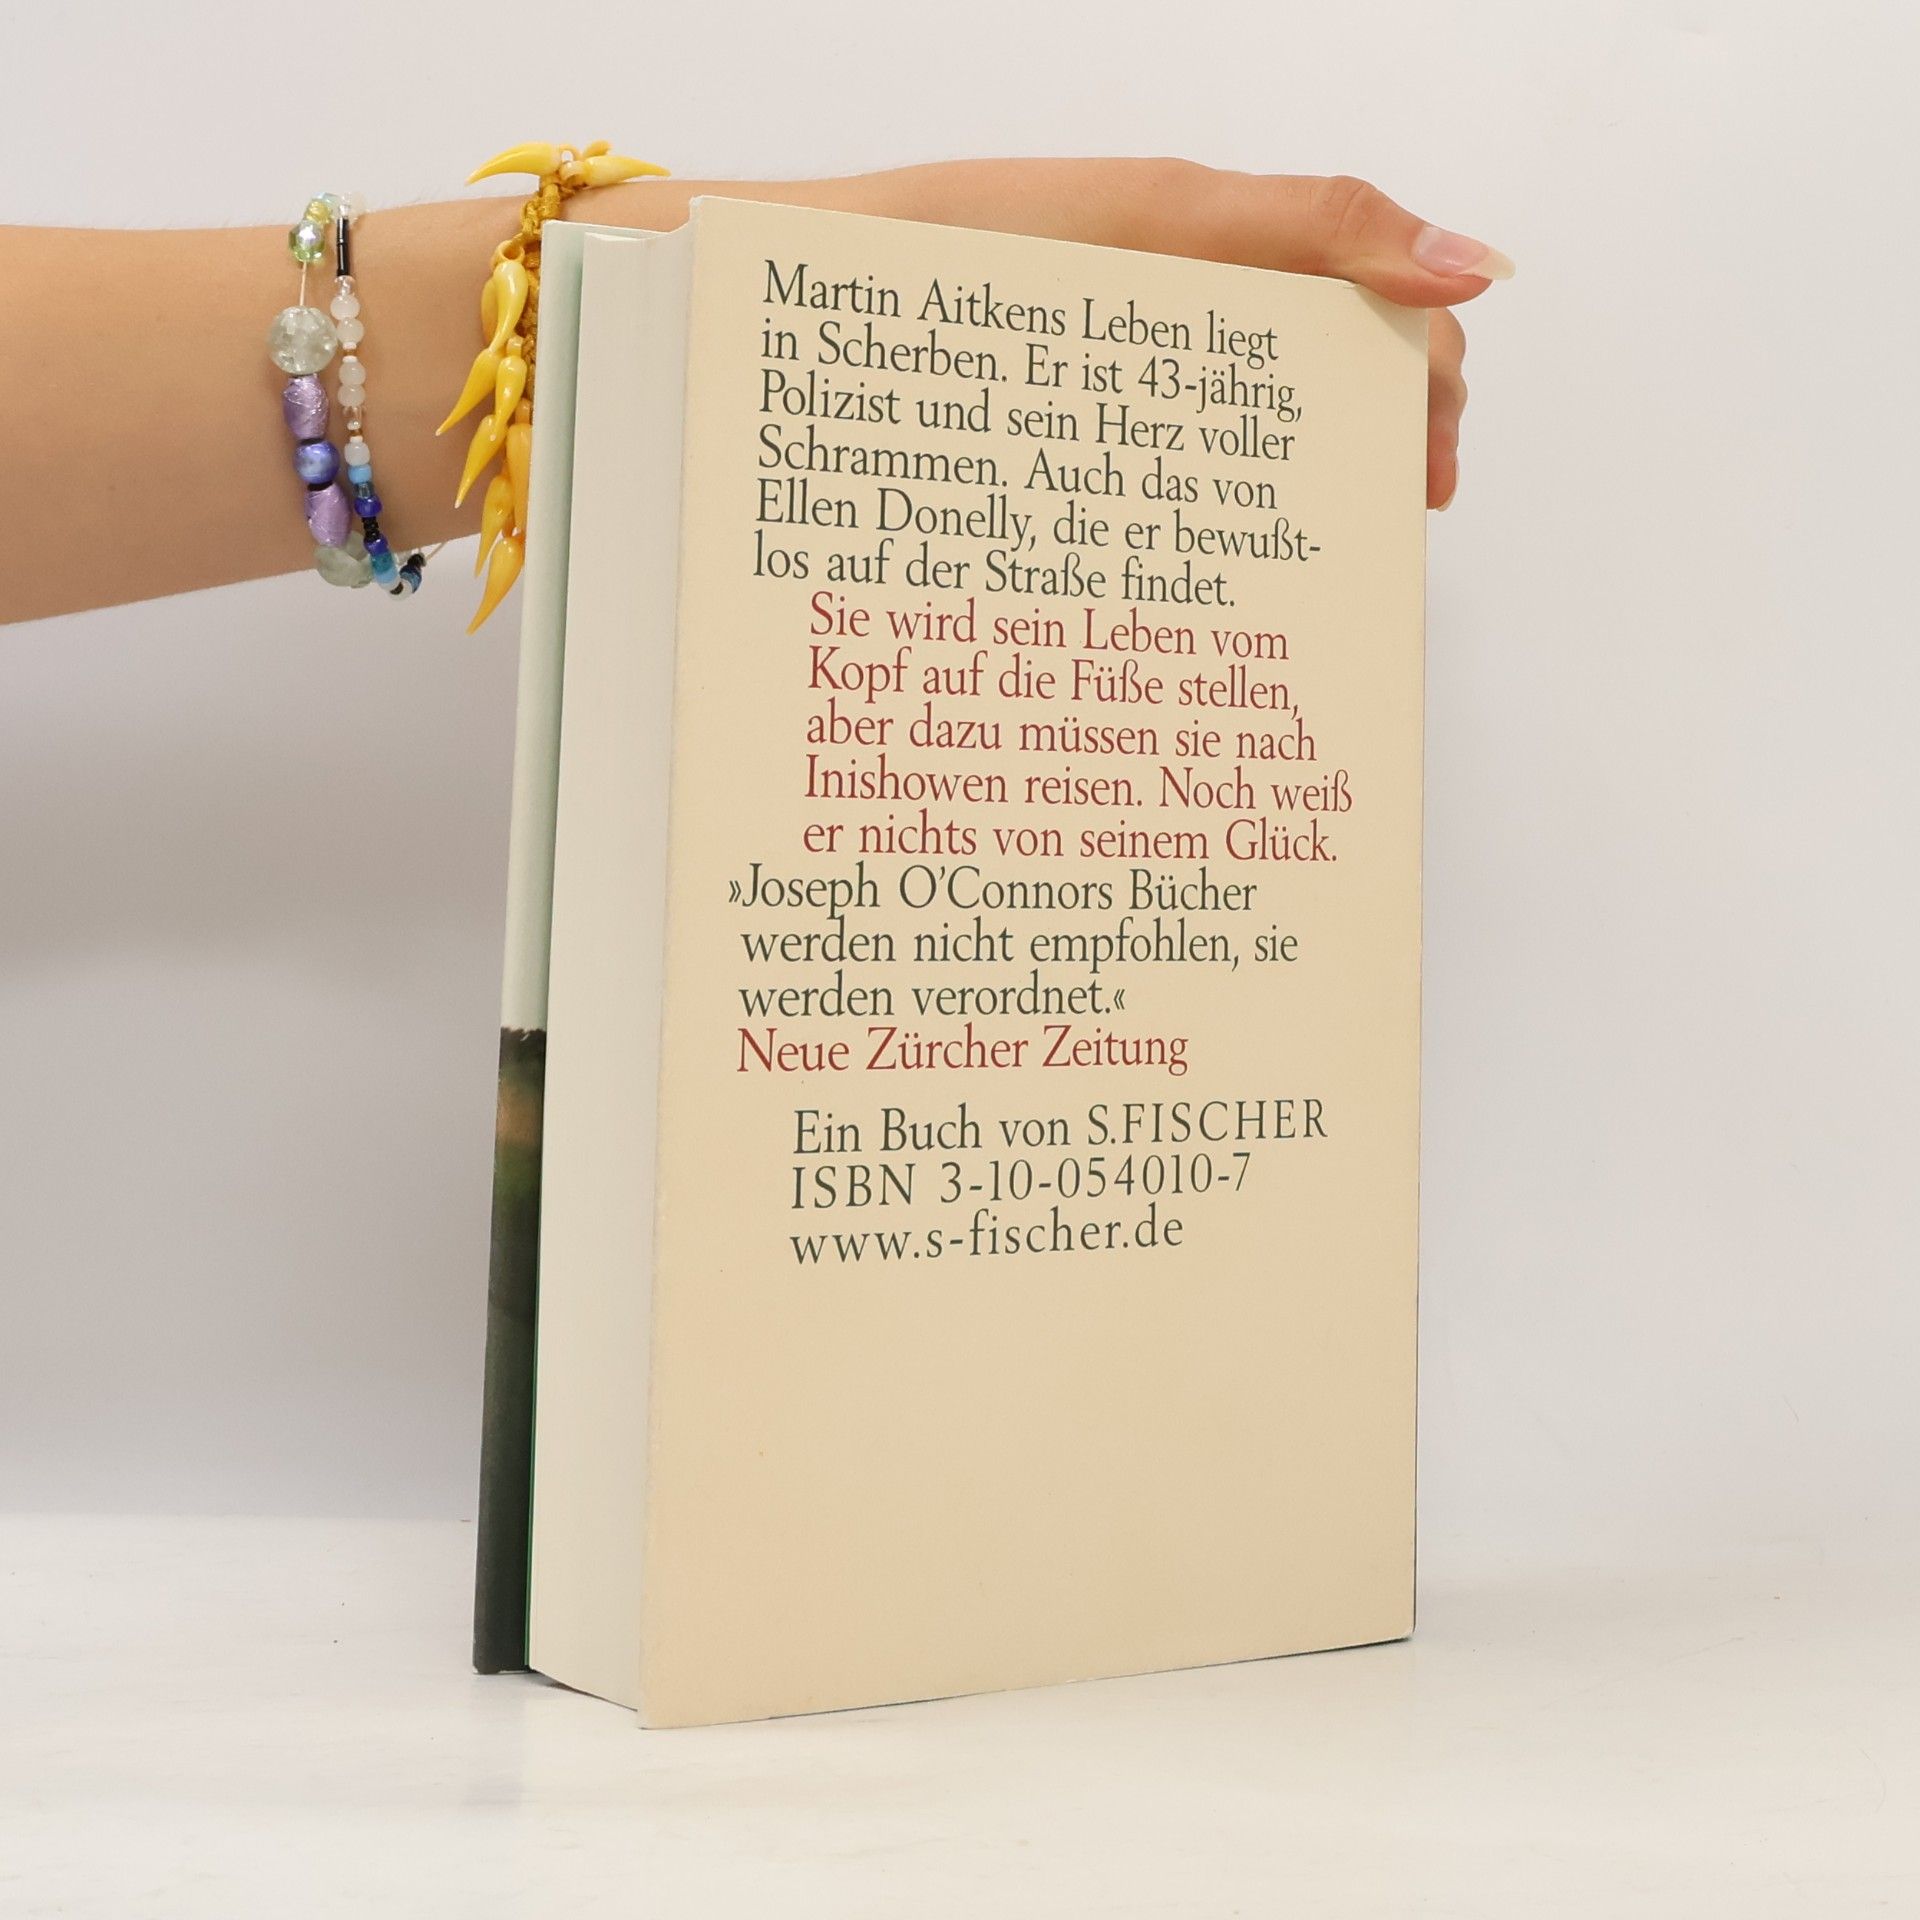 Martin Aitkens Leben liegt
in Scherben. Er ist 43-jährig,
Polizist und sein Herz voller
Schrammen. Auch das von
Ellen Donelly, die er bewußt-
los auf der Straße findet.
Sie wird sein Leben vom
Kopf auf die Füße stellen,
aber dazu müssen sie nach
Inishowen reisen. Noch weiß
er nichts von seinem Glück.
»Joseph O'Connors Bücher
werden nicht empfohlen, sie
werden verordnet.«
Neue Zürcher Zeitung
Ein Buch von S.FISCHER
ISBN 3-10-054010-7
www.s-fischer.de